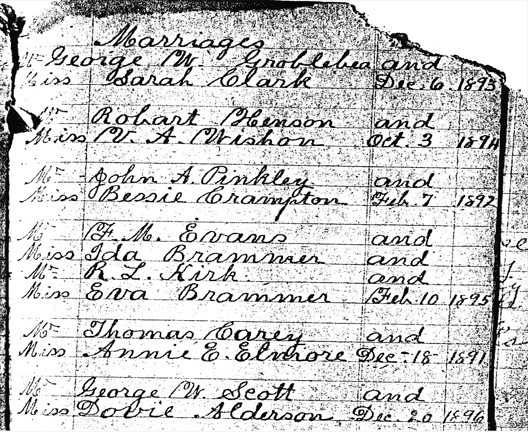 Marriages
Mr George W. Groblebea and
Miss Sarah Clark Dec. 6 1893
Mr Robart Henson and
Miss V. A. Wishon Oct. 3 1894
Mr John A. Pinkley and
Miss Bessie Crampton Feb. 7 1892
Mr F. M. Evans and
Miss Ida Brammer and
Mr R. L. Kirk and
Miss Eva Brammer Feb. 10 1895
Mr Thomas Carey and
Miss Annie E. Elmore Dec-18 1891
Mr George W. Scott and
Miss Dovie Alderson, Dec. 20 1896